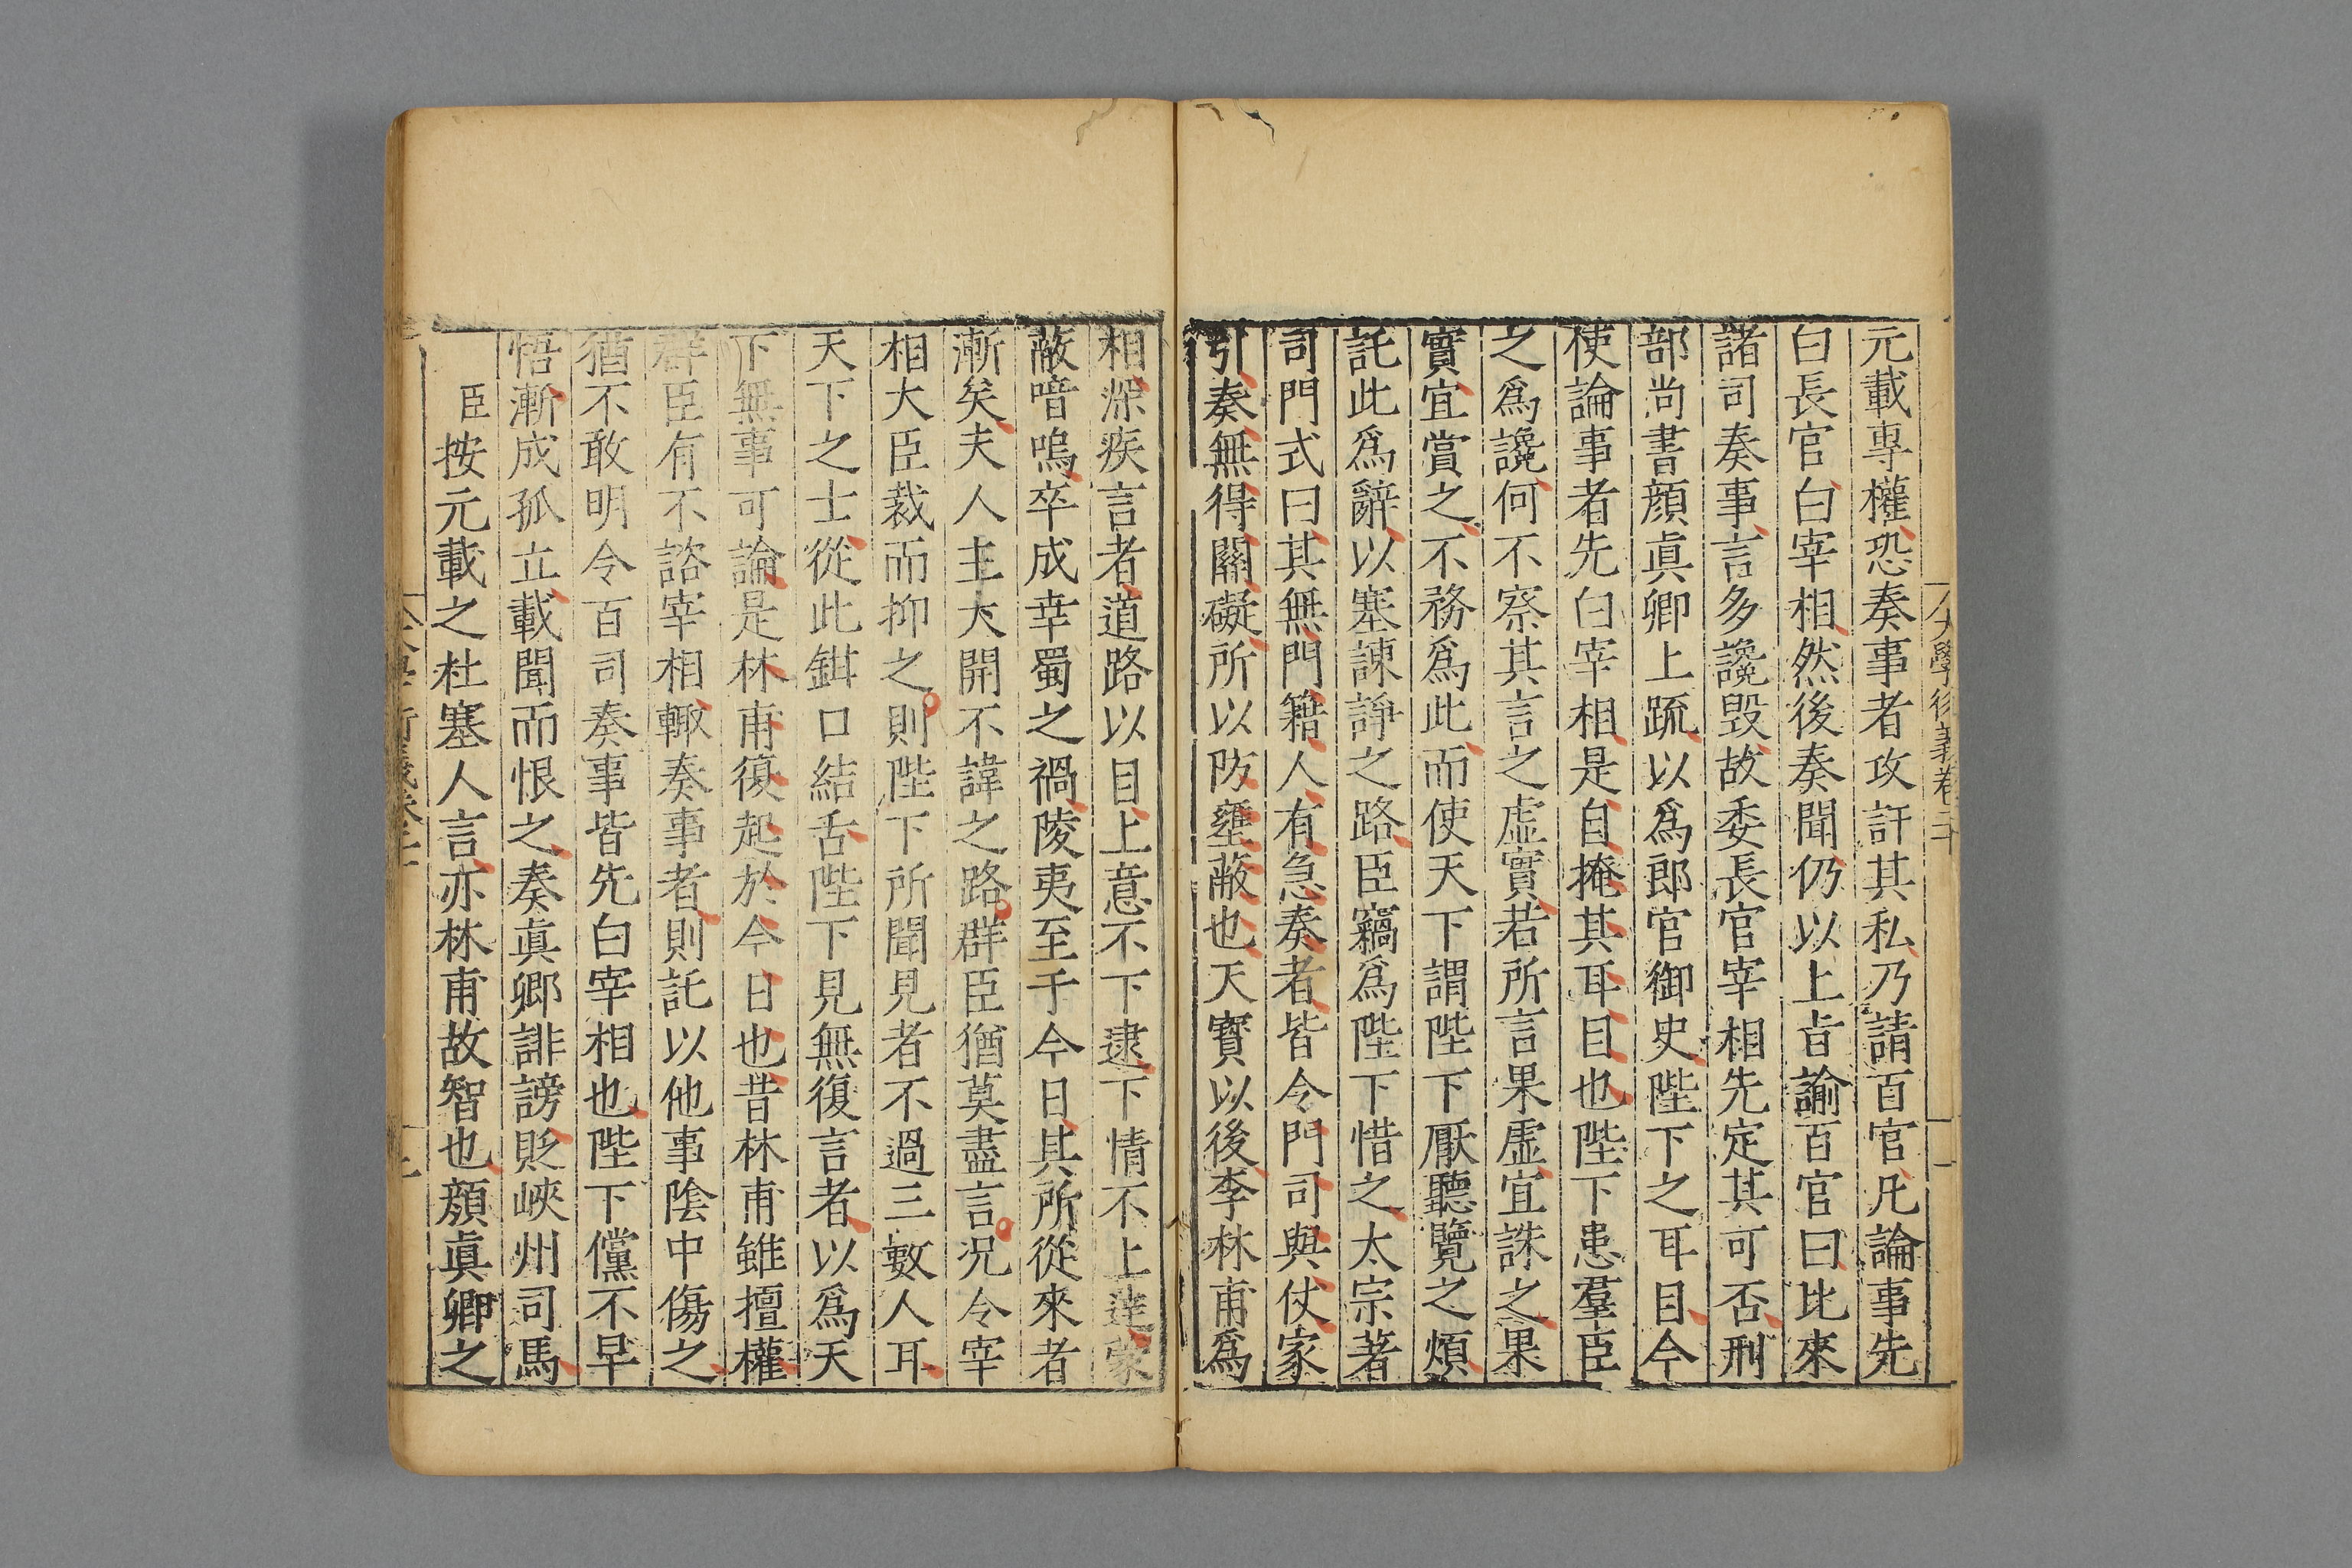 元載專權恐奏事者攻訐其私乃請百官凡論事先
白長官白宰相然後奏聞仍以上旨諭百官曰比來
諸司奏事言多讒毀故委長官宰相先定其可否刑
部尚書顔眞卿上疏以爲郎官御史陛下之耳目今
使論事者先白宰相是自掩其耳目也陛下患羣臣
之爲讒何不察其言之虛實若所言果虛宜誅之果
實宜賞之不務爲此而使天下謂陛下厭聽覽之煩
託此爲辭以塞諫諍之路臣竊爲陛下惜之太宗著
司門式曰其無門籍人有急奏者皆令門司與仗家
引奏無得關礙所以防壅蔽也天寶以後李林甫爲
相深疾言者道路以目上意不下逮下情不上達蒙
蔽喑嗚卒成幸蜀之禍陵夷至于今日其所從來者
漸矣夫人主大開不諱之路群臣猶莫盡言况今宰
相大臣裁而抑之則陛下所聞見者不過三數人耳
天下之士從此鉗口結舌陛下見無復言者以爲天
下無事可論是林甫復起於今日也昔林甫雖擅權
群臣有不諮宰相輙奏事者則託以他事陰中傷之
猶不敢明令百司奏事皆先白宰相也陛下儻不早
悟漸成孤立載聞而恨之奏眞卿誹謗貶峽州司馬
臣按元載之杜塞人言亦林甫故智也顔眞卿之